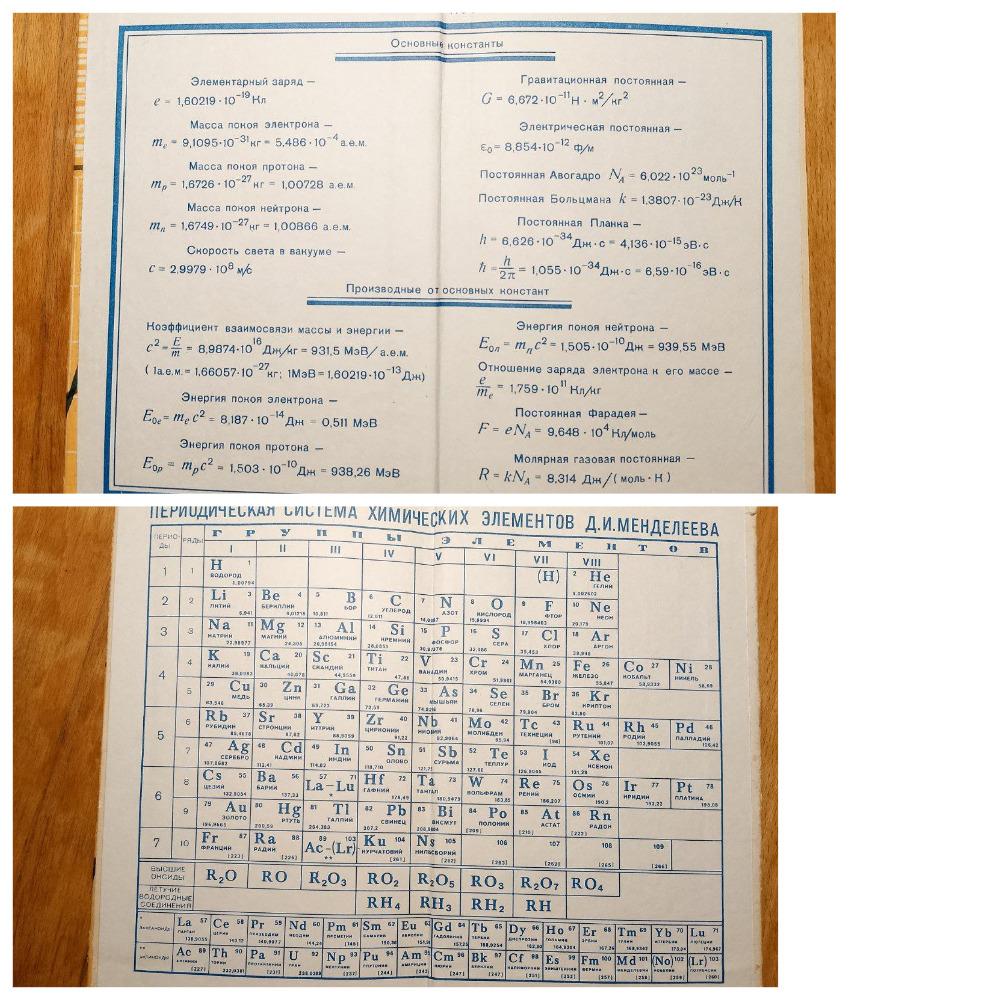 Основные константы
Элементарный заряд —
e = 1,60219·10⁻¹⁹ Кл
Масса покоя электрона —
mₑ = 9,1095·10⁻³¹ кг = 5.486·10⁻⁴ а.е.м.
Масса покоя протона —
mₚ = 1,6726·10⁻²⁷ кг = 1,00728 а.е.м.
Масса покоя нейтрона —
mₙ = 1,6749·10⁻²⁷ кг = 1,00866 а.е.м.
Скорость света в вакууме —
c = 2.9979·10⁸ м/с
Гравитационная постоянная —
G = 6,672·10⁻¹¹ Н·м²/кг²
Электрическая постоянная —
ε₀ = 8,854·10⁻¹² Ф/м
Постоянная Авогадро N_A = 6,022·10²³ моль⁻¹
Постоянная Больцмана k = 1,3807·10⁻²³ Дж/К
Постоянная Планка —
h = 6,626·10⁻³⁴ Дж·с = 4,136·10⁻¹⁵ эВ·с
ħ = h/2π = 1,055·10⁻³⁴ Дж·с = 6,59·10⁻¹⁶ эВ·с
Производные от основных констант
Коэффициент взаимосвязи массы и энергии —
c² = E/m = 8,9874·10¹⁶ Дж/кг = 931,5 МэВ/а.е.м.
(1а.е.м. = 1,66057·10⁻²⁷ кг; 1МэВ = 1,60219·10⁻¹³ Дж)
Энергия покоя электрона —
E₀ₑ = mₑc² = 8,187·10⁻¹⁴ Дж = 0,511 МэВ
Энергия покоя протона —
E₀ₚ = mₚc² = 1,503·10⁻¹⁰ Дж = 938,26 МэВ
Энергия покоя нейтрона —
E₀ₙ = mₙc² = 1,505·10⁻¹⁰ Дж = 939,55 МэВ
Отношение заряда электрона к его массе —
e/mₑ = 1,759·10¹¹ Кл/кг
Постоянная Фарадея —
F = eN_A = 9,648·10⁴ Кл/моль
Молярная газовая постоянная —
R = kN_A = 8,314 Дж/(моль·К)
ПЕРИОДИЧЕСКАЯ СИСТЕМА ХИМИЧЕСКИХ ЭЛЕМЕНТОВ Д.И.МЕНДЕЛЕЕВА
ПЕРИОДЫ РЯДЫ ГРУППЫ ЭЛЕМЕНТОВ
I II III IV V VI VII VIII
1 1 H 1 ВОДОРОД 1,00794 (H) 2 He ГЕЛИЙ 4,002602
2 2 Li 3 ЛИТИЙ 6,941 Be 4 БЕРИЛЛИЙ 9,01218 5 B БОР 10,811 6 C УГЛЕРОД 12,011 7 N АЗОТ 14,0067 8 O КИСЛОРОД 15,9994 9 F ФТОР 18,998403 10 Ne НЕОН 20,179
3 3 Na 11 НАТРИЙ 22,98977 Mg 12 МАГНИЙ 24,305 13 Al АЛЮМИНИЙ 26,98154 14 Si КРЕМНИЙ 28,0855 15 P ФОСФОР 30,97376 16 S СЕРА 32,066 17 Cl ХЛОР 35,453 18 Ar АРГОН 39,948
4 4 K 19 КАЛИЙ 39,0983 Ca 20 КАЛЬЦИЙ 40,078 Sc 21 СКАНДИЙ 44,9559 Ti 22 ТИТАН 47,88 V 23 ВАНАДИЙ 50,9415 Cr 24 ХРОМ 51,9961 Mn 25 МАРГАНЕЦ 54,9380 Fe 26 ЖЕЛЕЗО 55,847 Co 27 КОБАЛЬТ 58,9332 Ni 28 НИКЕЛЬ 58,69
5 29 Cu МЕДЬ 63,546 30 Zn ЦИНК 65,39 31 Ga ГАЛЛИЙ 69,723 32 Ge ГЕРМАНИЙ 72,59 33 As МЫШЬЯК 74,9216 34 Se СЕЛЕН 78,96 35 Br БРОМ 79,904 36 Kr КРИПТОН 83,80
5 6 Rb 37 РУБИДИЙ 85,4678 Sr 38 СТРОНЦИЙ 87,62 Y 39 ИТТРИЙ 88,9059 Zr 40 ЦИРКОНИЙ 91,22 Nb 41 НИОБИЙ 92,9064 Mo 42 МОЛИБДЕН 95,94 Tc 43 ТЕХНЕЦИЙ [98] Ru 44 РУТЕНИЙ 101,07 Rh 45 РОДИЙ 102,9055 Pd 46 ПАЛЛАДИЙ 106,42
7 47 Ag СЕРЕБРО 107,8682 48 Cd КАДМИЙ 112,41 49 In ИНДИЙ 114,82 50 Sn ОЛОВО 118,710 51 Sb СУРЬМА 121,75 52 Te ТЕЛЛУР 127,60 53 I ИОД 126,9045 54 Xe КСЕНОН 131,29
6 8 Cs 55 ЦЕЗИЙ 132,9054 Ba 56 БАРИЙ 137,33 57 71 La–Lu * Hf 72 ГАФНИЙ 178,49 Ta 73 ТАНТАЛ 180,9479 W 74 ВОЛЬФРАМ 183,85 Re 75 РЕНИЙ 186,207 Os 76 ОСМИЙ 190,2 Ir 77 ИРИДИЙ 192,22 Pt 78 ПЛАТИНА 195,08
9 79 Au ЗОЛОТО 196,9665 80 Hg РТУТЬ 200,59 81 Tl ТАЛЛИЙ 204,383 82 Pb СВИНЕЦ 207,2 83 Bi ВИСМУТ 208,9804 84 Po ПОЛОНИЙ [209] 85 At АСТАТ [210] 86 Rn РАДОН [222]
7 10 Fr 87 ФРАНЦИЙ [223] Ra 88 РАДИЙ [226] 89 103 Ac–(Lr) ** Ku 104 КУРЧАТОВИЙ [261] Ns 105 НИЛЬСБОРИЙ [262] 106 [263] 107 [262] 108 [265] 109 [266]
ВЫСШИЕ ОКСИДЫ R₂O RO R₂O₃ RO₂ R₂O₅ RO₃ R₂O₇ RO₄
ЛЕТУЧИЕ ВОДОРОДНЫЕ СОЕДИНЕНИЯ RH₄ RH₃ RH₂ RH
* ЛАНТАНОИДЫ La 57 ЛАНТАН 138,9055 Ce 58 ЦЕРИЙ 140,12 Pr 59 ПРАЗЕОДИМ 140,9077 Nd 60 НЕОДИМ 144,24 Pm 61 ПРОМЕТИЙ [145] Sm 62 САМАРИЙ 150,36 Eu 63 ЕВРОПИЙ 151,96 Gd 64 ГАДОЛИНИЙ 157,25 Tb 65 ТЕРБИЙ 158,9254 Dy 66 ДИСПРОЗИЙ 162,50 Ho 67 ГОЛЬМИЙ 164,9304 Er 68 ЭРБИЙ 167,26 Tm 69 ТУЛИЙ 168,9342 Yb 70 ИТТЕРБИЙ 173,04 Lu 71 ЛЮТЕЦИЙ 174,967
** АКТИНОИДЫ Ac 89 АКТИНИЙ [227] Th 90 ТОРИЙ 232,0381 Pa 91 ПРОТАКТИНИЙ [231] U 92 УРАН 238,0289 Np 93 НЕПТУНИЙ [237] Pu 94 ПЛУТОНИЙ [244] Am 95 АМЕРИЦИЙ [243] Cm 96 КЮРИЙ [247] Bk 97 БЕРКЛИЙ [247] Cf 98 КАЛИФОРНИЙ [251] Es 99 ЭЙНШТЕЙНИЙ [252] Fm 100 ФЕРМИЙ [257] Md 101 МЕНДЕЛЕВИЙ [258] (No) 102 [259] (Lr) 103 [260]